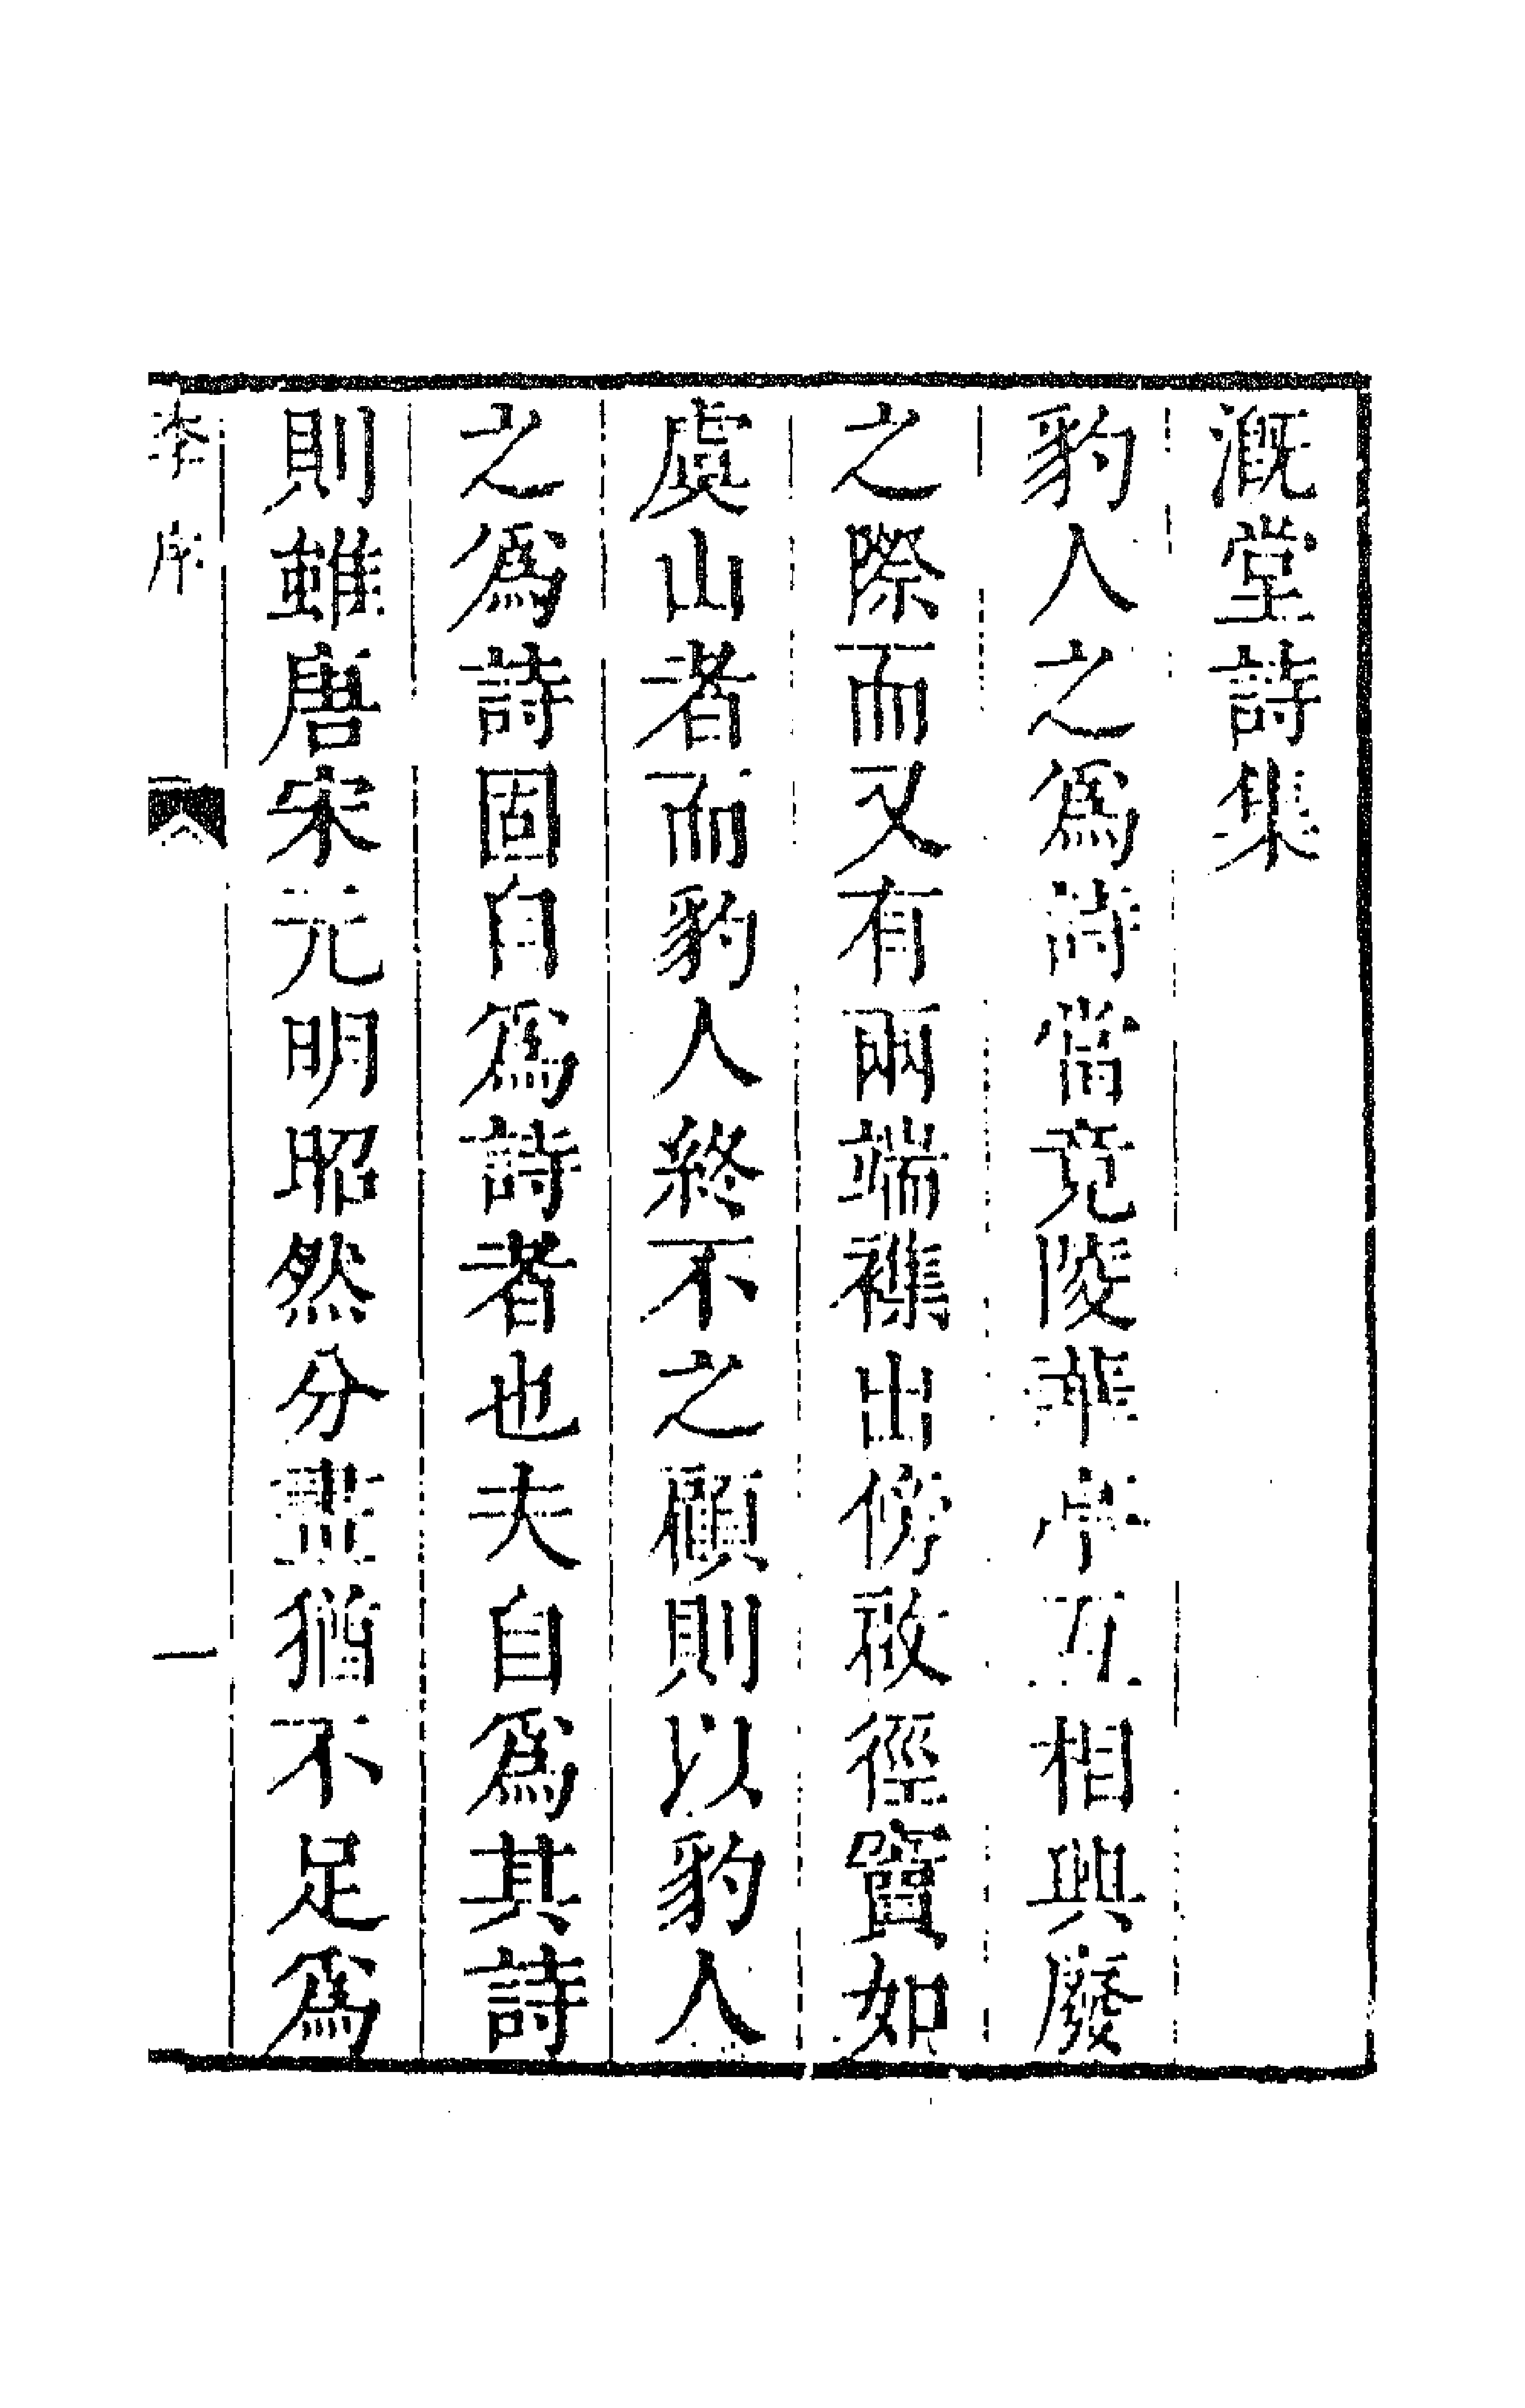 溉堂詩集
豹人之爲詩當竟陵華亭互相興廢
之際而又有兩端襍出傍啟徑竇如
虞山者而豹人終不之顧則以豹人
之爲詩固自爲詩者也夫自爲其詩
則雖唐宋元明昭然分畫猶不足爲
李序
一